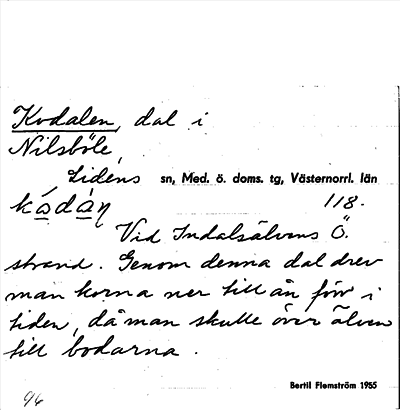 Kodalen, dal i
Nilsböle,
Lidens sn, Med. ö. doms. tg, Västernorrl. län
118.
Vid Indalsälvens Ö.
strand. Genom denna dal drev
man korna ner till ån förr i
tiden, då man skulle över älven
till bodarna.
Bertil Flemström 1955
96